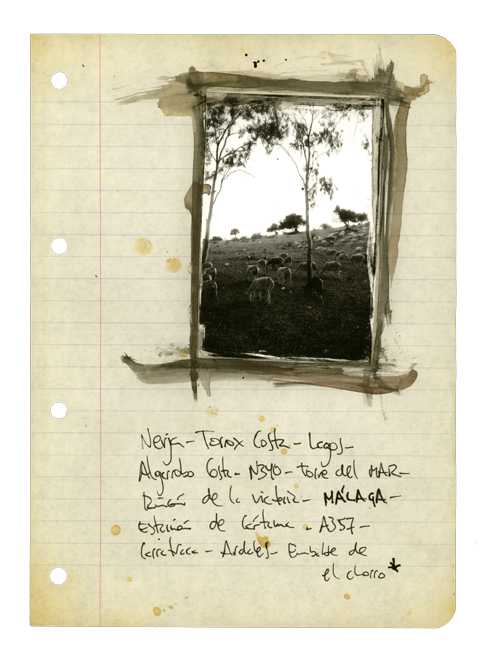 Nerja - Torrox Costa - Lagos -
Algarrobo Costa - N340 - torre del MAR -
Rincón de la victoria - MÁLAGA -
Estación de Cártama - A357 -
Carratraca - Ardales - Embalse de
el chorro *